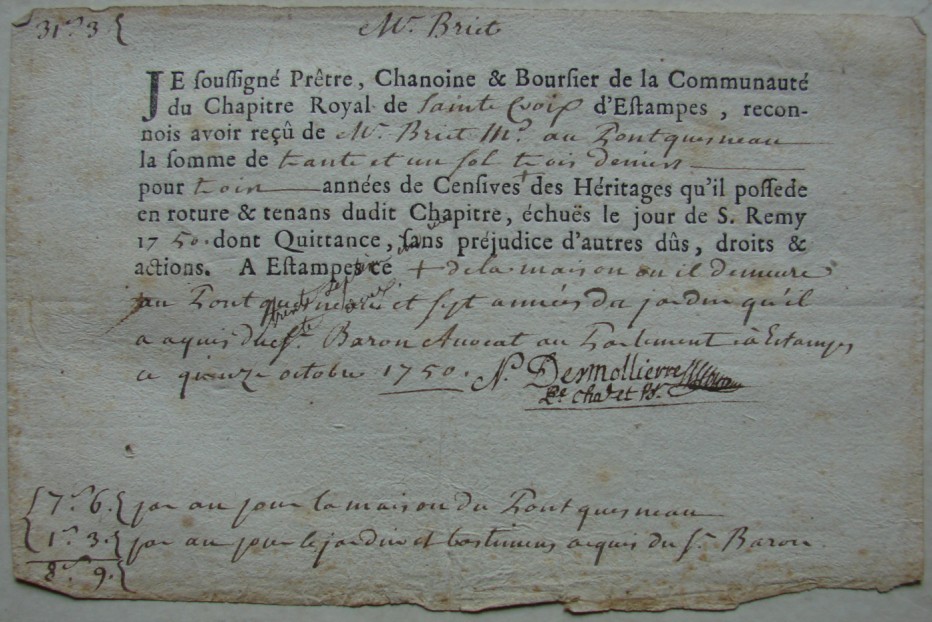 31ˢ 3 {
Mʳ Briet
JE souſſigné Prêtre, Chanoine & Bourſier de la Communauté
du Chapitre Royal de Sainte Croix d'Eſtampes, recon-
nois avoir reçû de Mʳ Briet Mᵈ au Pontquesneau
la ſomme de trante et un ſol trois deniers
pour trois années de Cenſives + des Héritages qu'il poſſede
en roture & tenans dudit Chapitre, échuës le jour de S. Remy
1750. dont Quittance, ſans préjudice d'autres dûs, droits &
actions. A Eſtampes ce + de la maison ou il demeure
au Pont quesneau et sept années du jardin qu'il
a aquis du Sʳ Baron Avocat au Parlement à Estampes
ce quinze octobre 1750. N. Desmollierre
Pᵉ chaⁿ et
{ 7ˢ 6. { par an pour la maison du Pont quesneau
{ 1ˢ 3. { par an pour le jardin et bastimens aquis du Sʳ Baron
8ˢ 9. {